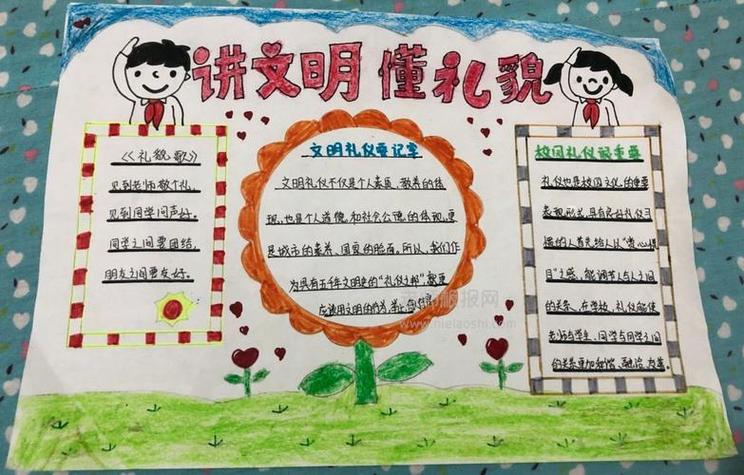 讲文明 懂礼貌
《礼貌歌》
见到老师敬个礼,
见到同学问声好。
同学之间要团结,
朋友之间要友好。
文明礼仪要记牢
文明礼仪不仅是个人素质、教养的体
现,也是个人道德和社会公德的体现,更
是城市的素养、国家的脸面。所以,我们作
为具有五千年文明史的"礼仪之邦",就更
应该用文明的行为举止
校园礼仪很重要
礼仪也是校园文化的重要
表现形式,具有良好礼仪习
惯的人首先给人以"赏心悦
目"之感,能调节人与人之间
的关系,在学校,礼仪能使
老师与学生、同学与同学之间
的关系更加和谐、融洽、友善。
www.nielaoshi.com